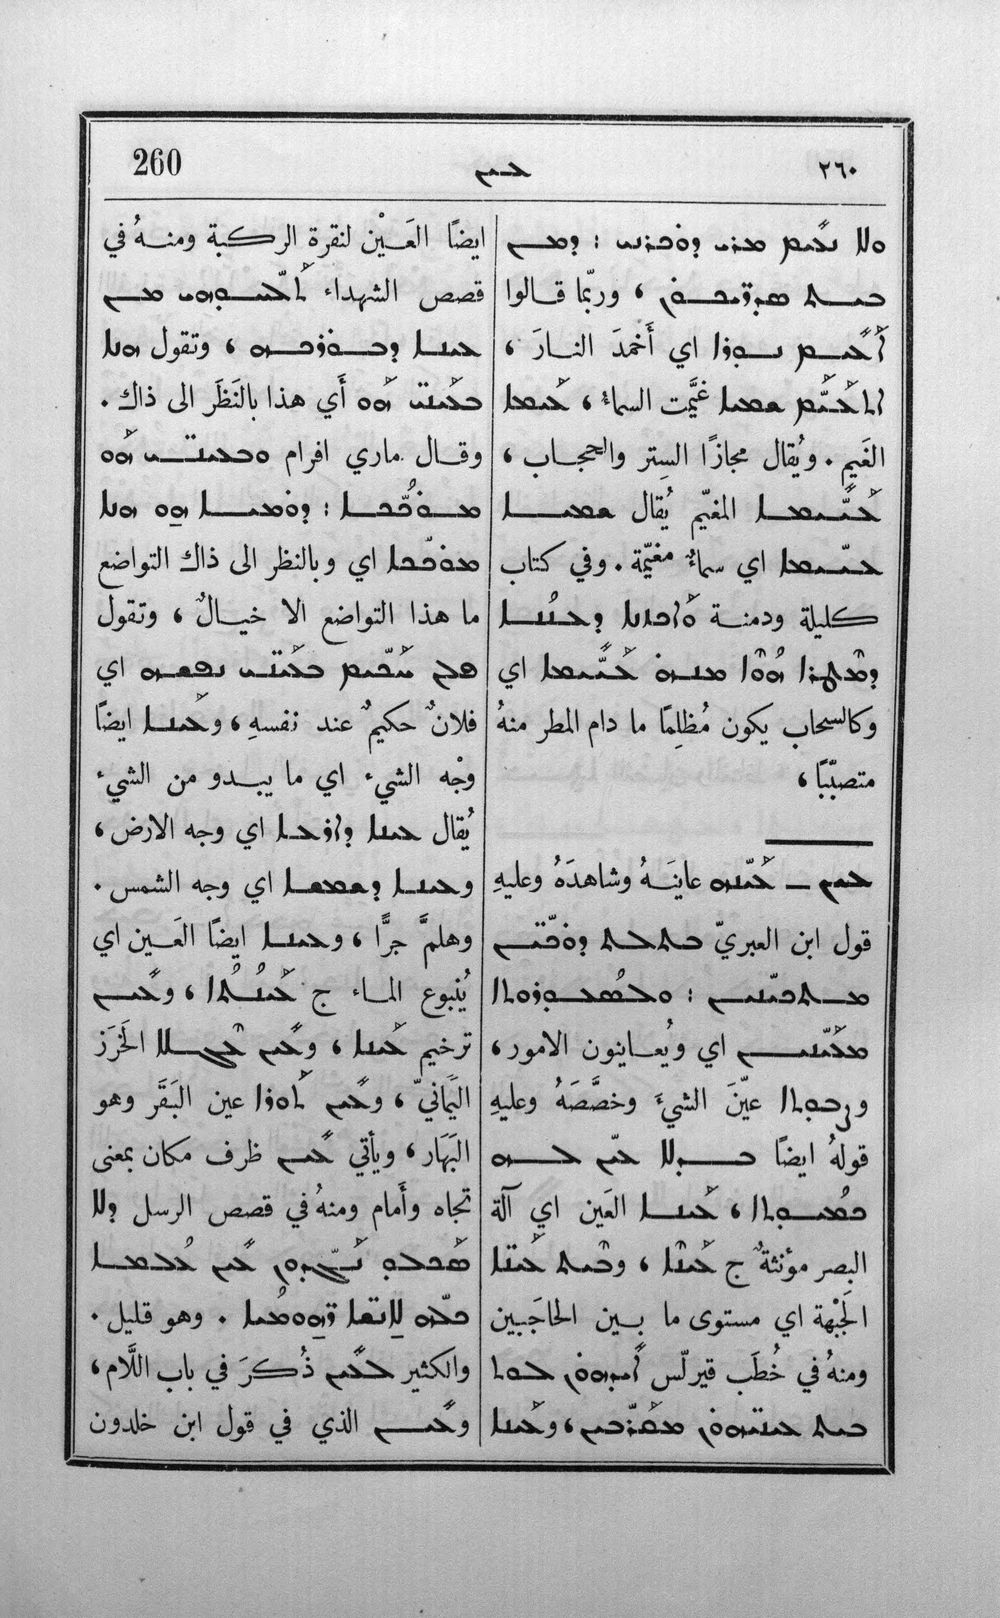 260
ܥܝܢ
٢٦٠
ܘܠܐ ܢܥܝܡ ܡܢܝ
ܒܝܬ ، وربّما قالوا
ܐܥܝܡ ܢܘܪܐ اي أَخمدَ النارَ ،
ܐܬܥܝܡ ܫܡܝܐ غيَّمت السماءُ ، ܥܝܡܐ
الغَيم . ويُقال مجازًا السِتر والحجاب ،
ܥܝܝܡܐ المغيّم يُقال ܫܡܝܐ
ܥܝܝܡܐ اي سماءٌ مغيّمة . وفي كتاب
كليلة ودمنة ܘܐܟܙܢܐ ܕܥܢܢܐ
ܕܡܛܪܐ ܗܘܐ ܡܢܗ ܥܝܝܡܐ اي
وكالسحاب يكون مُظلِمًا ما دام المطر منهُ
متصبّبًا ،
ܥܝܢ ــ ܥܝܢܗ عاينَهُ وشاهدَهُ وعليهِ
قول ابن العبريّ
ܡܬܒܝܢܝܢ : ܘܠܣܥܘܪܘܬܐ
ܡܥܝܢܝܢ اي ويُعاينون الامور ،
ܘܨܒܘܬܐ عيّنَ الشيَّ وخصَّصَهُ وعليهِ
قولهُ ايضًا ܥܝܢ ܠܗ
ܒܣܝܡܘܬܐ ، ܥܝܢܐ العَين اي آلة
البصر مؤنثةٌ ج ܥܝܢܐ ، ܘܒܝܬ ܥܝܢܐ
الجَبْهة اي مستوى ما بين الحاجَبين
ومنهُ في خُطَب قيرلّس ܐܝܕܗܘܢ ܠܘܬ
ܒܝܬ ܥܝܢܝܗܘܢ ܡܩܪܒܝܢ ، ܘܥܝܢܐ
ايضًا العَيْن لنقرة الركبة ومنهُ في
قصص الشهداء ܡܢ
ܥܝܢܐ ܕܒܘܪܟܗ ، وتقول ܗܢܐ
ܒܥܝܢܝ ܗܘ أَي هذا بالنَظَر الى ذاك .
وقال ماري افرام ܘܒܥܝܢܝ ܗܘ
ܡܘܟܟܐ : ܕܘܡܝܐ ܗܘ ܗܢܐ
ܡܘܟܟܐ اي وبالنظر الى ذاك التواضع
ما هذا التواضع الا خيالٌ ، وتقول
ܦܠܢ ܚܟܝܡ ܒܥܝܢܝ ܢܦܫܗ اي
فلانٌ حكيمٌ عند نفسهِ ، ܘܥܝܢܐ ايضًا
وجْه الشيء اي ما يبدو من الشيء
يُقال ܥܝܢܐ ܕܐܪܥܐ اي وجه الارض ،
ܘܥܝܢܐ ܕܫܡܫܐ اي وجه الشمس .
وهلمَّ جرًّا ، ܘܥܝܢܐ ايضًا العَين اي
يُنبوع الماء ج ܥܝܢܬܐ ، ܘܥܝܢ
ترخيم ܥܝܢܐ ، ܘܥܝܢ ܥܓܠܐ الخَرَز
اليَمَانيّ ، ܘܥܝܢ ܬܘܪܐ عين البَقَر وهو
البَهَار ، ويأتي ܥܝܢ ظرف مكان بمعنى
تجاه وأَمام ومنهُ في قصص الرسل ܕܠܐ
ܥܝܢ ܥܠܡܐ
ܟܠܗ ܠܐܢܫܐ ܪܗܘܡܝܐ . وهو قليل .
والكثير ܠܥܝܢ ذُكرَ في باب اللَّام ،
ܘܥܝܢ الذي في قول ابن خلدون